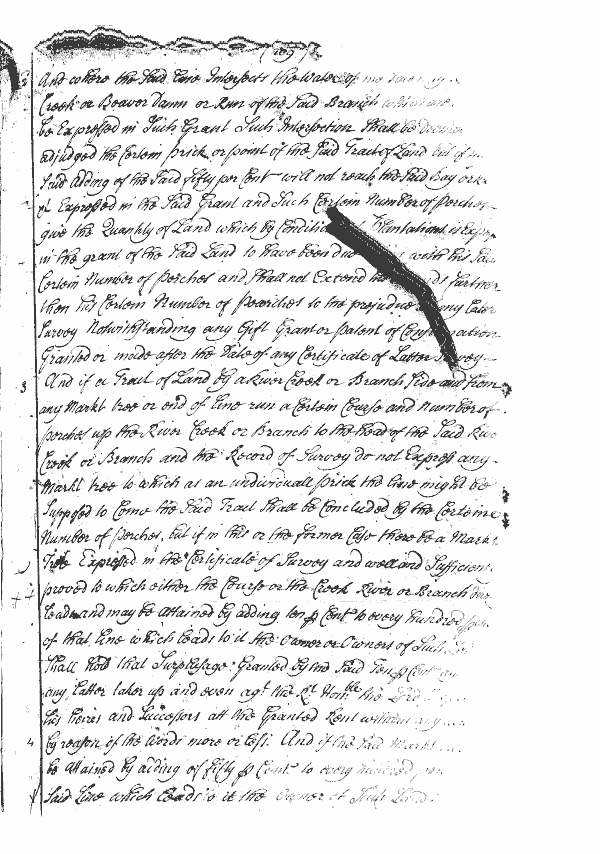 (209)
And where the Said Line Intersects the Water of
Creek or Beaver Damn or Run of the Said Branch which are
be Expressed in Such Grant Such Intersection Shall be
adjudged the Certein prick or point of the Said Tract of Land but if
Said adding of the Said fifty per Cent will not reach the Said Bay or
Expressed in the Said Grant and Such Certein Number of perches
give the Quantity of Land which by Condition Plantations is
in the grant of the Said Land to have been due with his Said
Certein Number of perches and Shall not Extend the further
then his Certein Number of pearches to the prejudice any Later
Survey Notwithstanding any Gift Grant or patent of
Granted or made after the Date of any Certificate of Latter
3 And if a Tract of Land by a River Creek or Branch Side and from
any Markt tree or end of Line run a Certein Course and Number of
perches up the River Creek or Branch to the head of the Said
Creek or Branch and the Record of Survey do not Express any
Markt tree to which as an undividuall prick the line might be
Supposed to Come the Said Tract Shall be Concluded by the Certeine
Number of Perches, but if in this or the former Case there be a Markt
Tree Expressed in the Certificate of Survey and well and Sufficient
proved to which either the Course or the Creek River or Branch
leads and may be attained by adding ten p Cent to every hundred
of that Line which leads to it the owner or Owners of Such
Shall hold that Surplusage Granted by the Said Ten p Cent
any Latter taker up and even agt the Rt Honble the Lord
his Heires and Successors att the Granted Rent without
by reason of the Words more or less.
4 And if the Said Markt
be attained by aiding of fifty p Cent to every hundred
Said Line which leads to it the Owner of Such Land